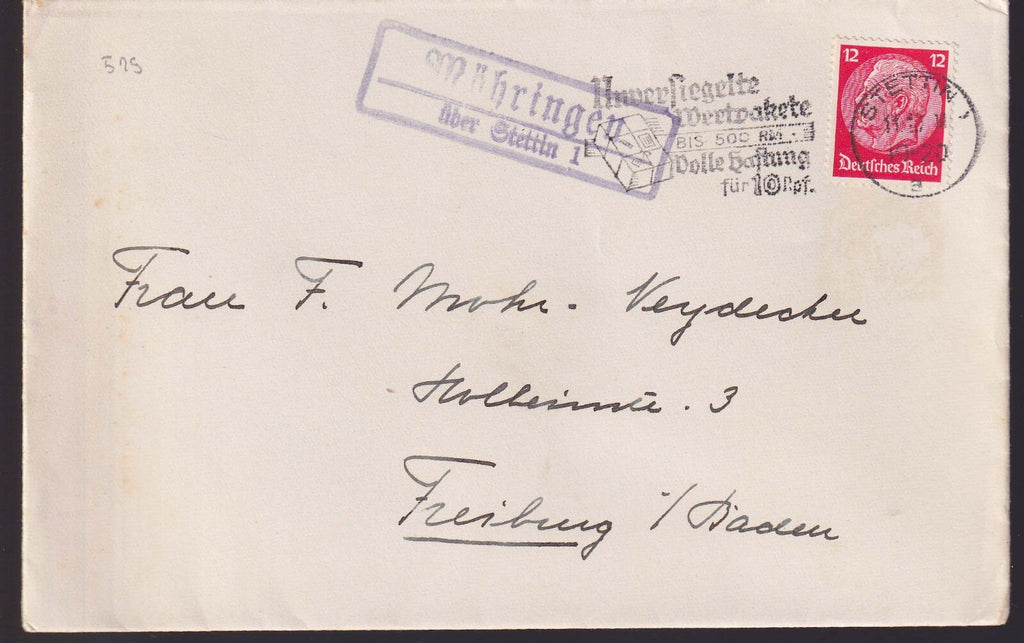 579
Möhringen
über Stettin 1
Unversiegelte
Wertpakete
BIS 500 RM.
Volle Haftung
für 10 Rpf.
12 12
Deutsches Reich
STETTIN 1
a
Frau F. Mohr-Veydecker
Holbeinstr. 3
Freiburg i/Baden